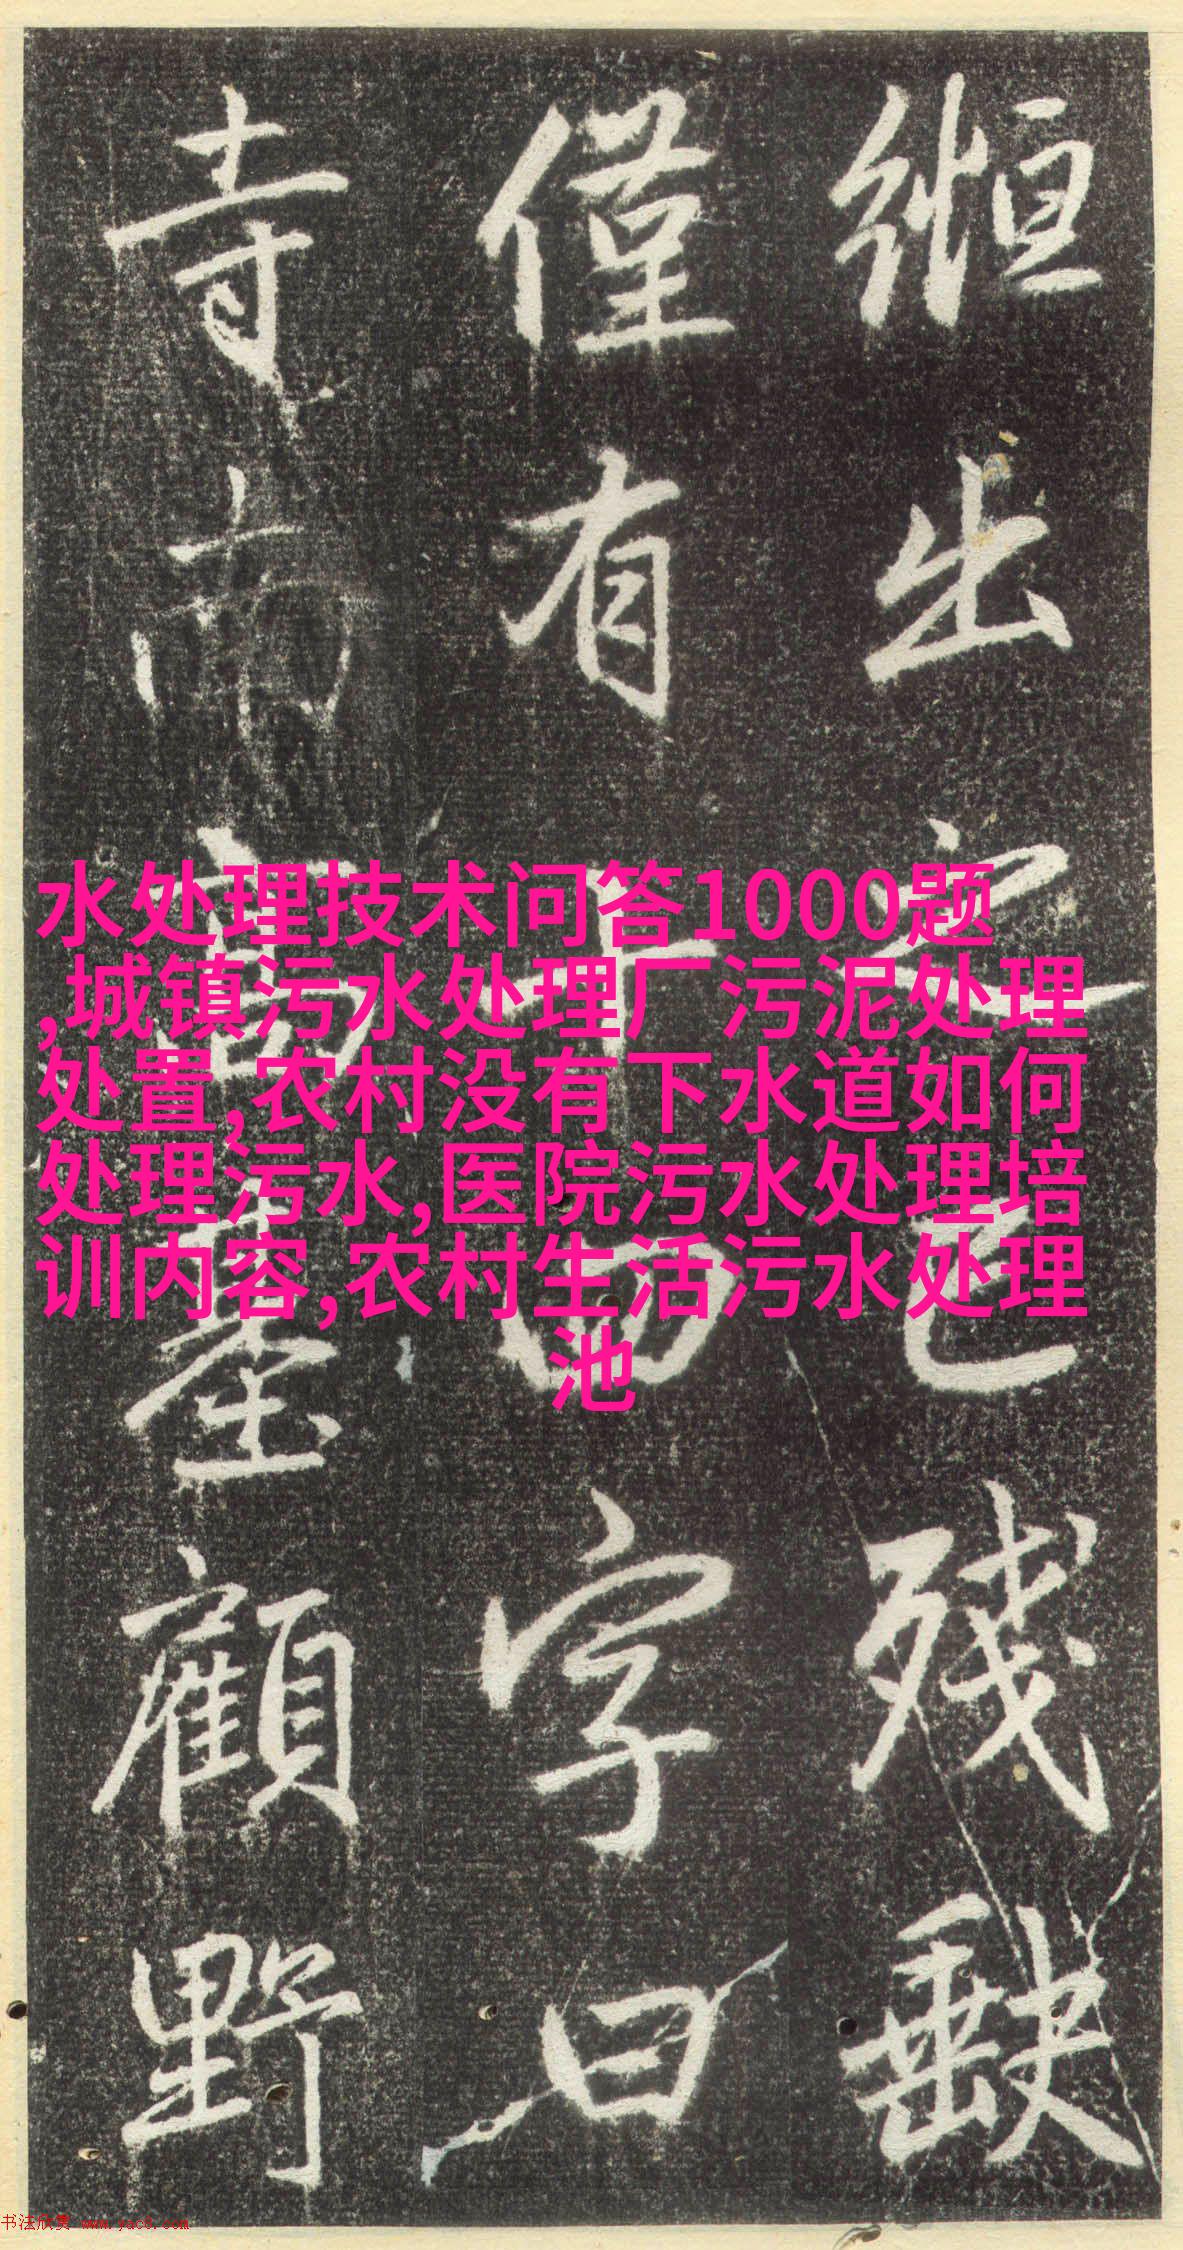 出之已残缺
僅有十四字曰
寺而高臺顧野
水处理技术问答1000题
,城镇污水处理厂污泥处理
处置,农村没有下水道如何
处理污水,医院污水处理培
训内容,农村生活污水处理
池
书法欣赏 www.yac8.com